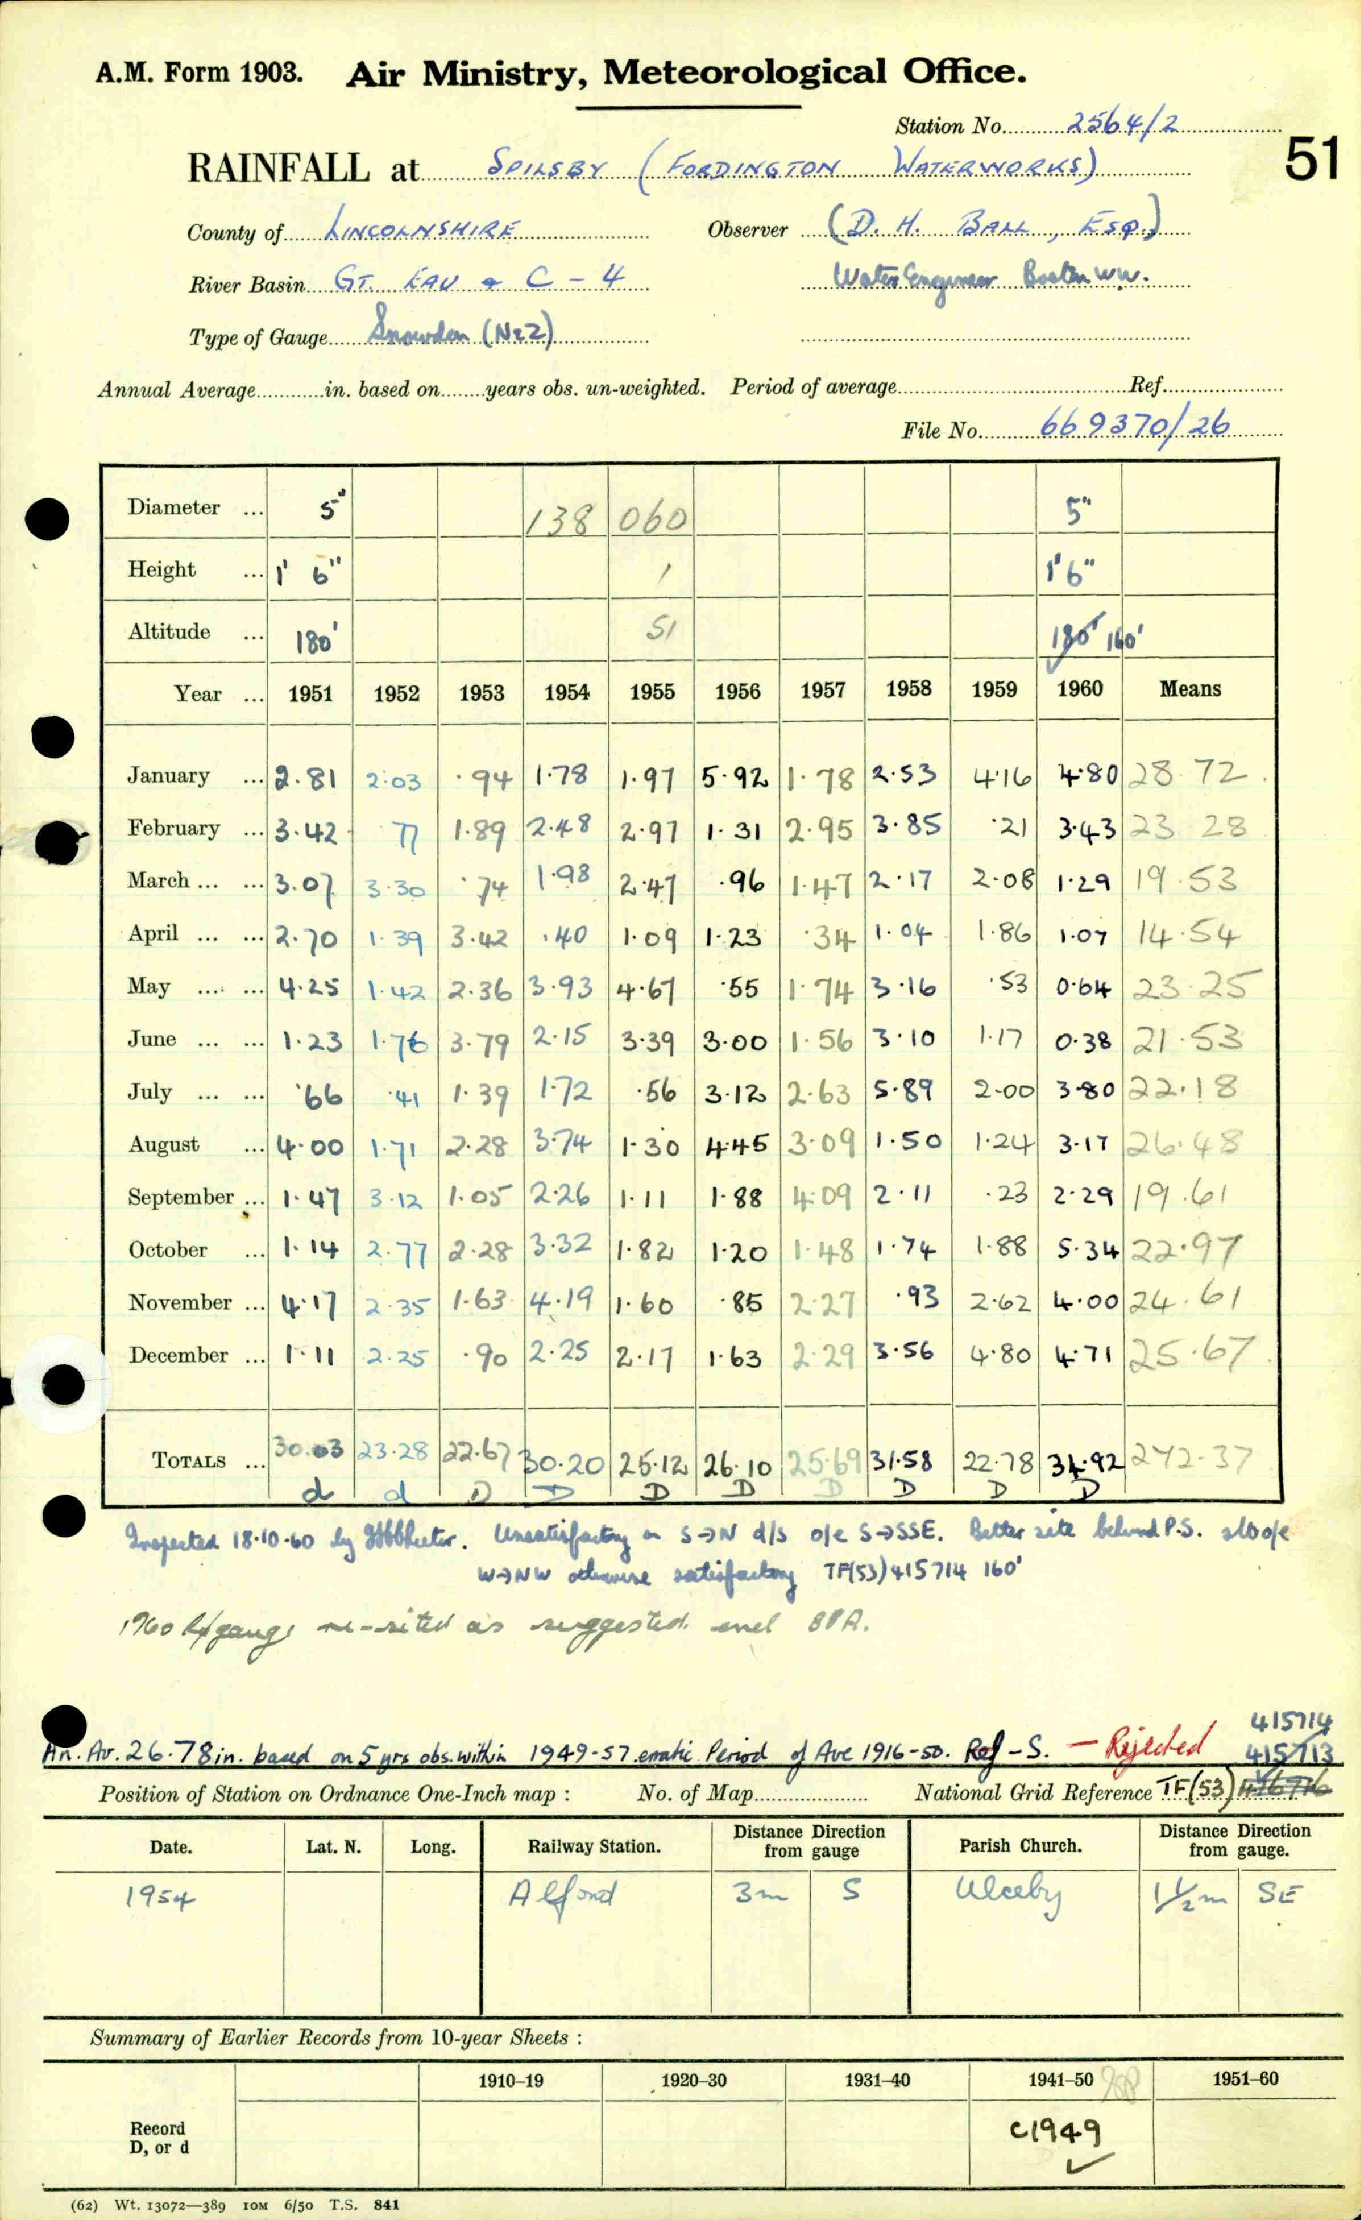 A.M. Form 1903. Air Ministry, Meteorological Office.
Station No. 2564/2
51
RAINFALL at SPILSBY (FORDINGTON WATERWORKS)
County of LINCOLNSHIRE Observer (D. H. BALL, ESQ.)
River Basin GT. EAU & C - 4 Water Engineer Boston W.W.
Type of Gauge Snowdon (Nr2)
Annual Average in. based on years obs. un-weighted. Period of average Ref.
File No. 669370/26
Diameter ... 5" 138 060 5"
Height ... 1' 6" 1 1'6"
Altitude ... 180' 51 180' 160'
Year ... 1951 1952 1953 1954 1955 1956 1957 1958 1959 1960 Means
January ... 2.81 2.03 .94 1.78 1.97 5.92 1.78 2.53 4.16 4.80 28.72
February ... 3.42 .77 1.89 2.48 2.97 1.31 2.95 3.85 .21 3.43 23 28
March ... ... 3.07 3.30 .74 1.98 2.47 .96 1.47 2.17 2.08 1.29 19.53
April ... ... 2.70 1.39 3.42 .40 1.09 1.23 .34 1.04 1.86 1.07 14.54
May ... ... 4.25 1.42 2.36 3.93 4.67 .55 1.74 3.16 .53 0.64 23.25
June ... ... 1.23 1.76 3.79 2.15 3.39 3.00 1.56 3.10 1.17 0.38 21.53
July ... ... .66 .41 1.39 1.72 .56 3.12 2.63 5.89 2.00 3.80 22.18
August ... 4.00 1.71 2.28 3.74 1.30 4.45 3.09 1.50 1.24 3.17 26.48
September ... 1.47 3.12 1.05 2.26 1.11 1.88 4.09 2.11 .23 2.29 19.61
October ... 1.14 2.77 2.28 3.32 1.82 1.20 1.48 1.74 1.88 5.34 22.97
November ... 4.17 2.35 1.63 4.19 1.60 .85 2.27 .93 2.62 4.00 24.61
December ... 1.11 2.25 .90 2.25 2.17 1.63 2.29 3.56 4.80 4.71 25.67
TOTALS ... 30.03 23.28 22.67 30.20 25.12 26.10 25.69 31.58 22.78 34.92 272.37
d d D D D D D D D D
Inspected 18.10.60 by Unsatisfactory on S→N d/s o/e S→SSE. Better site behind P.S. also o/e
W→NW otherwise satisfactory TF(53)415714 160'
1960 R/gauge re-sited as suggested. encl 88A.
An. Av. 26.78in. based on 5 yrs obs. within 1949-57 erratic. Period of Ave 1916-50. Ref - S. — Rejected
415714
415713
Position of Station on Ordnance One-Inch map : No. of Map National Grid Reference TF(53)
Date. Lat. N. Long. Railway Station. Distance from gauge Direction Parish Church. Distance from gauge. Direction
1954 Alford 3m S Ulceby 1½m SE
Summary of Earlier Records from 10-year Sheets :
1910–19 1920–30 1931–40 1941–50 1951–60
Record
D, or d
C1949
(62) Wt. 13072—389 10M 6/50 T.S. 841